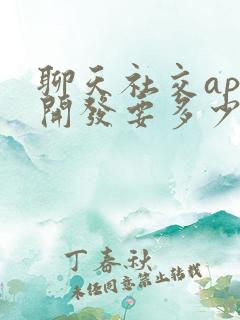 聊天社交ap
開發要多少
丁春秋
未经同意禁止转载